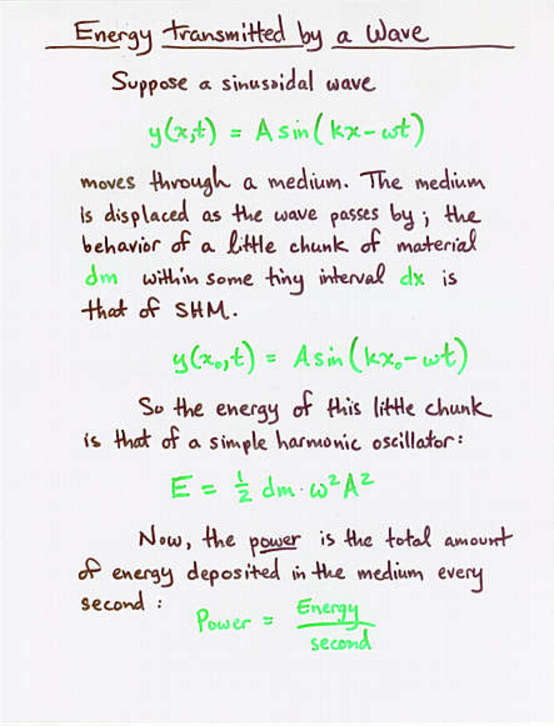 Energy transmitted by a Wave
Suppose a sinusoidal wave
y(x,t) = A sin(kx-ωt)
moves through a medium. The medium
is displaced as the wave passes by; the
behavior of a little chunk of material
dm within some tiny interval dx is
that of SHM.
y(x₀,t) = A sin(kx₀-ωt)
So the energy of this little chunk
is that of a simple harmonic oscillator:
E = ½ dm·ω²A²
Now, the power is the total amount
of energy deposited in the medium every
second:
Power = Energy
second